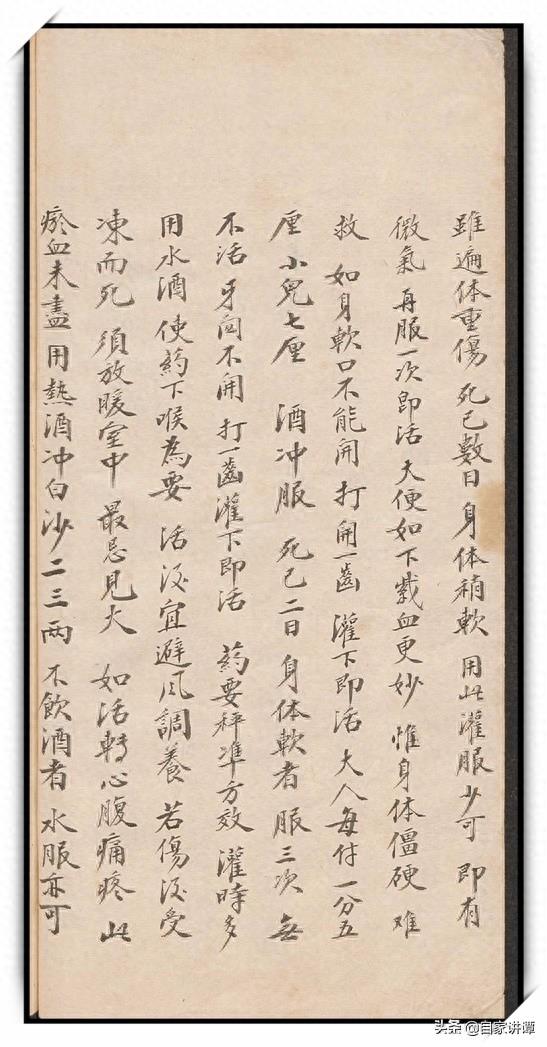 雖遍体重傷 死已數日 身体稍軟 用此灌服少可 即有
微氣 再服一次即活 大便如下紫血更妙 惟身体僵硬 难
救 如身軟口不能開 打開一齒 灌下即活 大人每付一分五
厘 小兒七厘 酒冲服 死已二日 身体軟者 服三次 無
不活 牙闗不開 打一齒灌下即活 药要秤準方效 灌時多
用水酒 使药下喉為要 活後宜避风調養 若傷後受
凍而死 須放暖室中 最忌見火 如活轉心腹痛疼 此
瘀血未盡 用熱酒冲白沙二三两 不飲酒者 水服亦可
头条 @自家讲谭